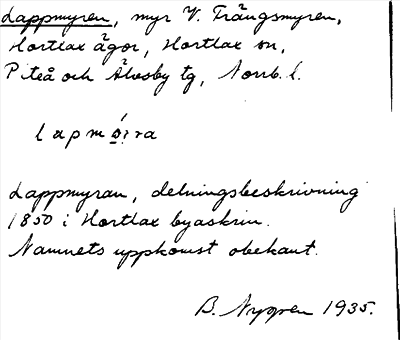 Lappmyren, myr V. Trångsmyren,
Hortlax ägor, Hortlax sn,
Piteå och Älvsby tg, Norrb. l.
lapm
Lappmyran, delningsbeskrivning
1850 i Hortlax byaskrin.
Namnets uppkomst obekant.
B. Nygren 1935.